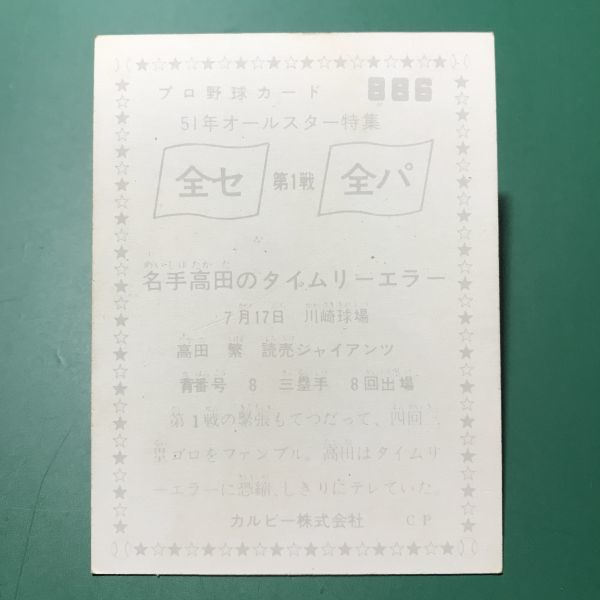 プロ野球カード 886
51年オールスター特集
全セ 第1戦 全パ
めいしゅ たかだ
名手高田のタイムリーエラー
7月17日 川崎球場
高田 繁 読売ジャイアンツ
背番号 8 三塁手 8回出場
第1戦の緊張もてつだって、四回三
塁ゴロをファンブル。高田はタイムリ
ーエラーに恐縮、しきりにテレていた。
カルビー株式会社 CP